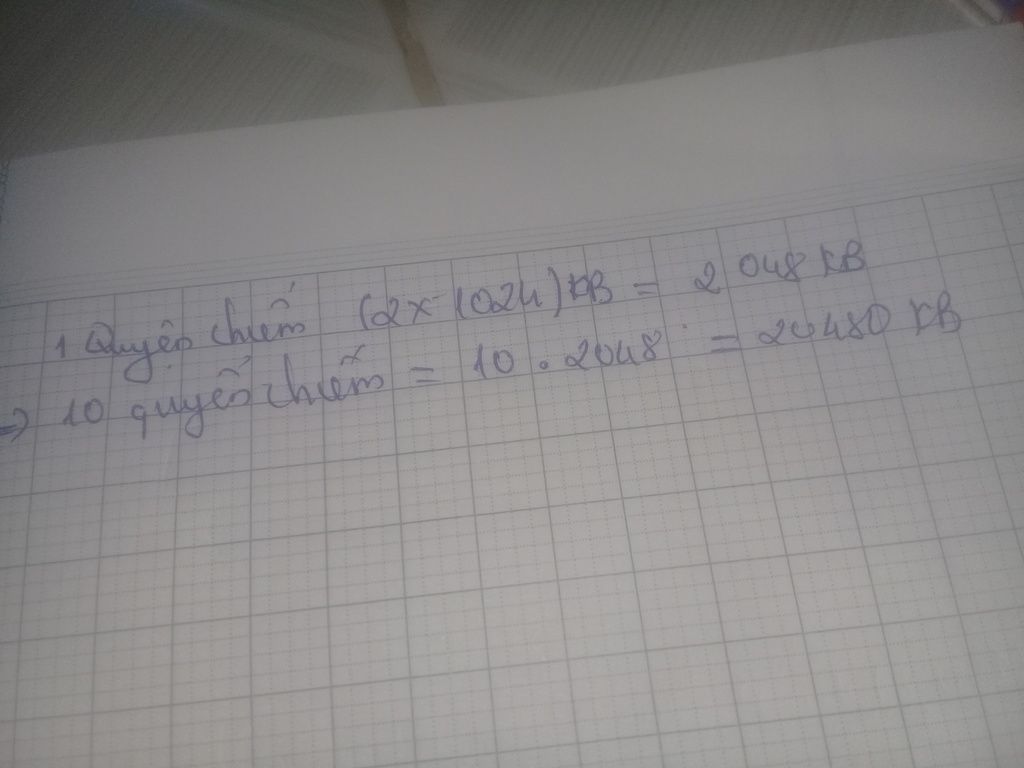 1 Quyển chiếm (2 x 1024) KB = 2 048 KB
=> 10 quyển chiếm = 10 . 2048 = 20480 KB